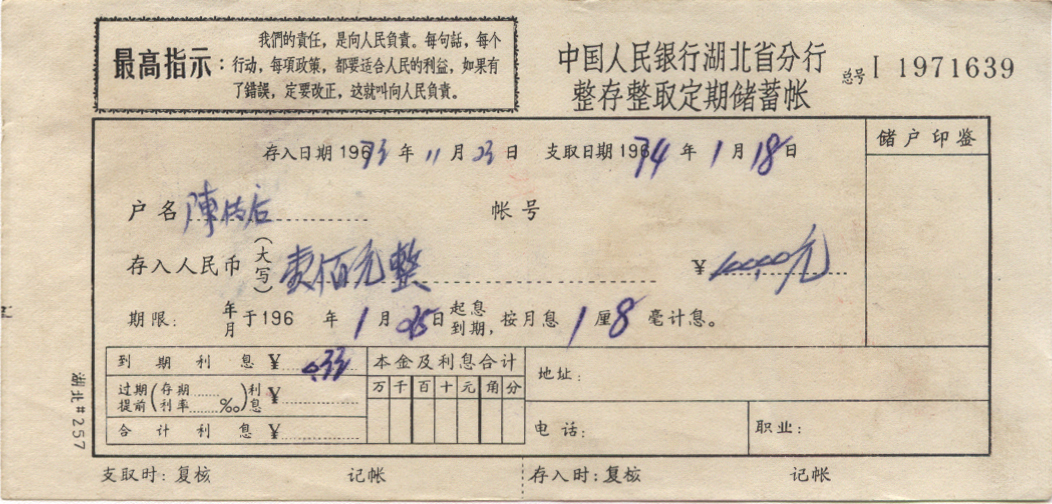 最高指示:
我們的責任，是向人民負責。每句話，每个
行动，每項政策，都要适合人民的利益，如果有
了錯誤，定要改正，这就叫向人民負責。
中国人民银行湖北省分行
整存整取定期储蓄帐
总号 I 1971639
存入日期 196 73 年 11 月 23 日 支取日期 196 74 年 1 月 18 日
储户印鉴
户名 陳 帐号
存入人民币(大写) 壹佰元整 ¥ 100.00元
期限: 年月于196 年 1 月 日起息到期，按月息 1 厘 8 毫计息。
到期利息 ¥ 0.33
过期提前(存期利率 ‰)利息 ¥
合计利息 ¥
本金及利息合计
万 千 百 十 元 角 分
地址:
电话:
职业:
湖北#257
支取时: 复核 记帐 存入时: 复核 记帐